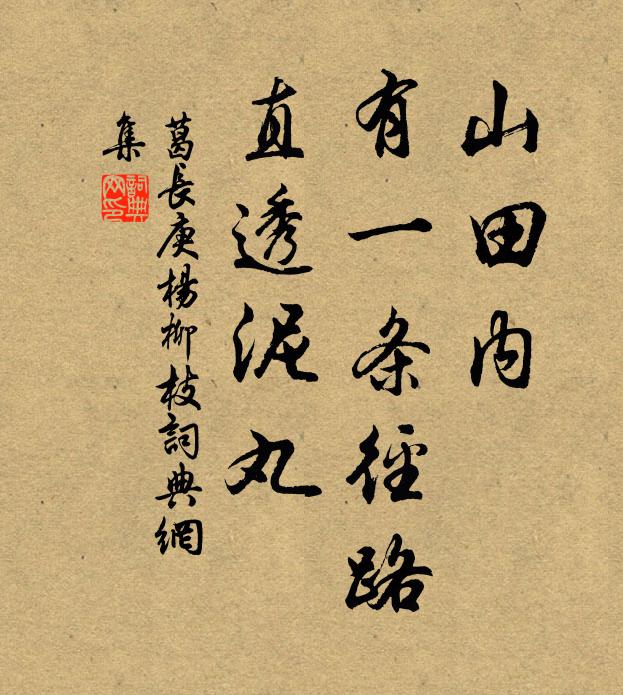 山田内
有一条径路
直透泥丸
葛長庚楊柳枝詞典網
集
詞典
网印